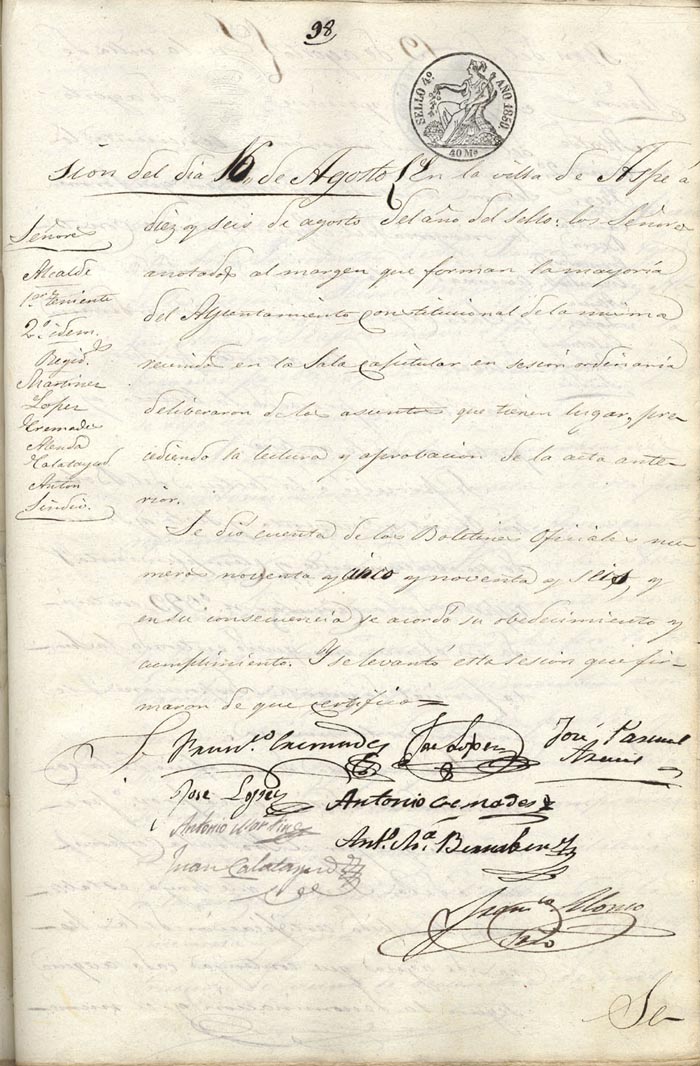 98
SELLO 4º AÑO 1850
40 Ms
sion del dia 16 de Agosto En la villa de Aspe a
diez y seis de agosto del año del sello: los Señores
anotados al margen que forman la mayoria
del Ayuntamiento constitucional de la misma
reunidos en la Sala capitular en sesion ordinaria
deliberaron de los asuntos que tienen lugar, pre
cediendo la lectura y aprobacion de la acta ante
rior.
Señores
Alcalde
1er teniente
2º idem.
Regid.s
Martinez
Lopez
Cremades
Calatayud
Anton
Sindico.
Se dió cuenta de los Boletines Oficiales nu
meros noventa y cinco y noventa y seis, y
en su consecuencia se acordó su obedecimiento y
cumplimiento. Y se levantó esta sesion que fir
maron de que certifico=
Fran.co Cremades José Lopez José Pascual
José Lopez Antonio Cremades
Antonio Martinez
Ant.º M.ª Bernabeu
Juan Calatayud
Alonso
Se-